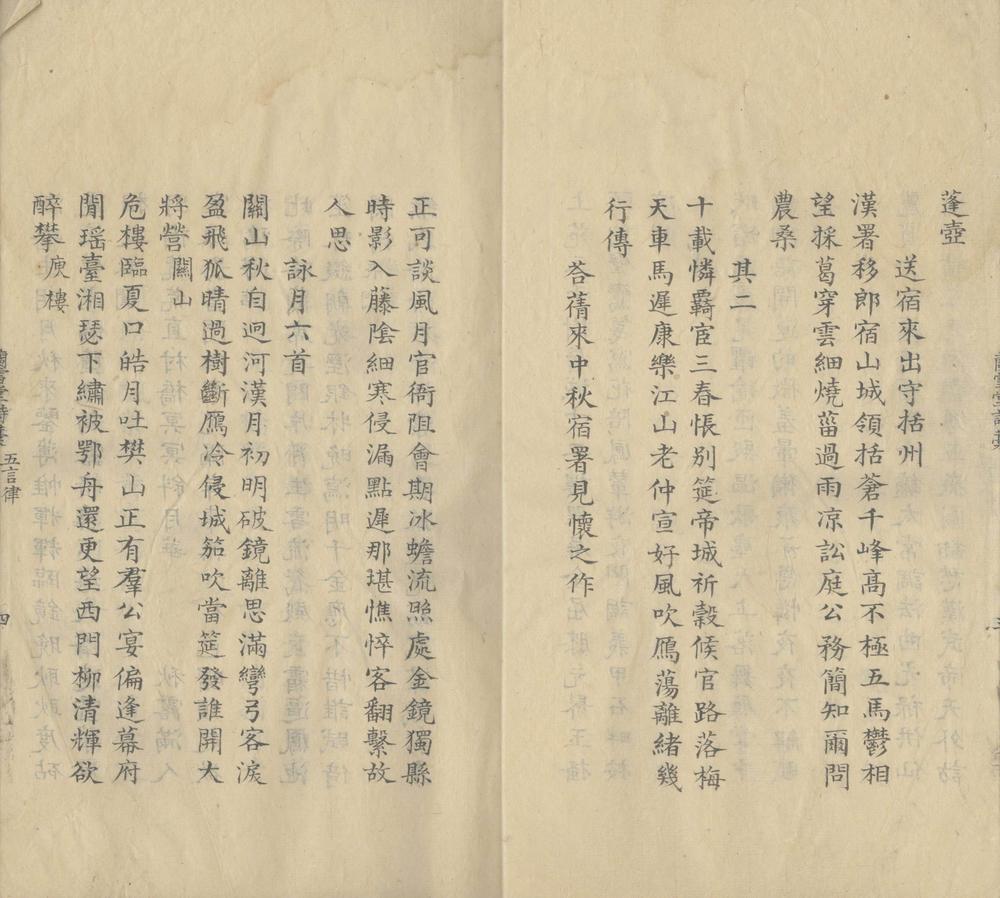 蓬壺
送宿來出守括州
漢署移郎宿山城領括蒼千峰高不極五馬鬱相
望採葛穿雲細燒菑過雨凉訟庭公務簡知爾問
農桑
其二
十載憐覊宦三春悵别筵帝城祈穀候官路落梅
天車馬遲康樂江山老仲宣好風吹鴈蕩離緒幾
行傳
荅蒨來中秋宿署見懷之作
正可談風月官衙阻會期冰蟾流照處金鏡獨縣
時影入藤陰細寒侵漏點遲那堪憔悴客翻繫故
人思
詠月六首
關山秋自迥河漢月初明破鏡離思滿彎弓客淚
盈飛狐晴過樹斷鴈冷侵城笳吹當筵發誰開大
將營關山
危樓臨夏口皓月吐樊山正有羣公宴偏逢幕府
閒瑶臺湘瑟下繡被鄂舟還更望西門柳清輝欲
醉攀庾樓
五言律
四